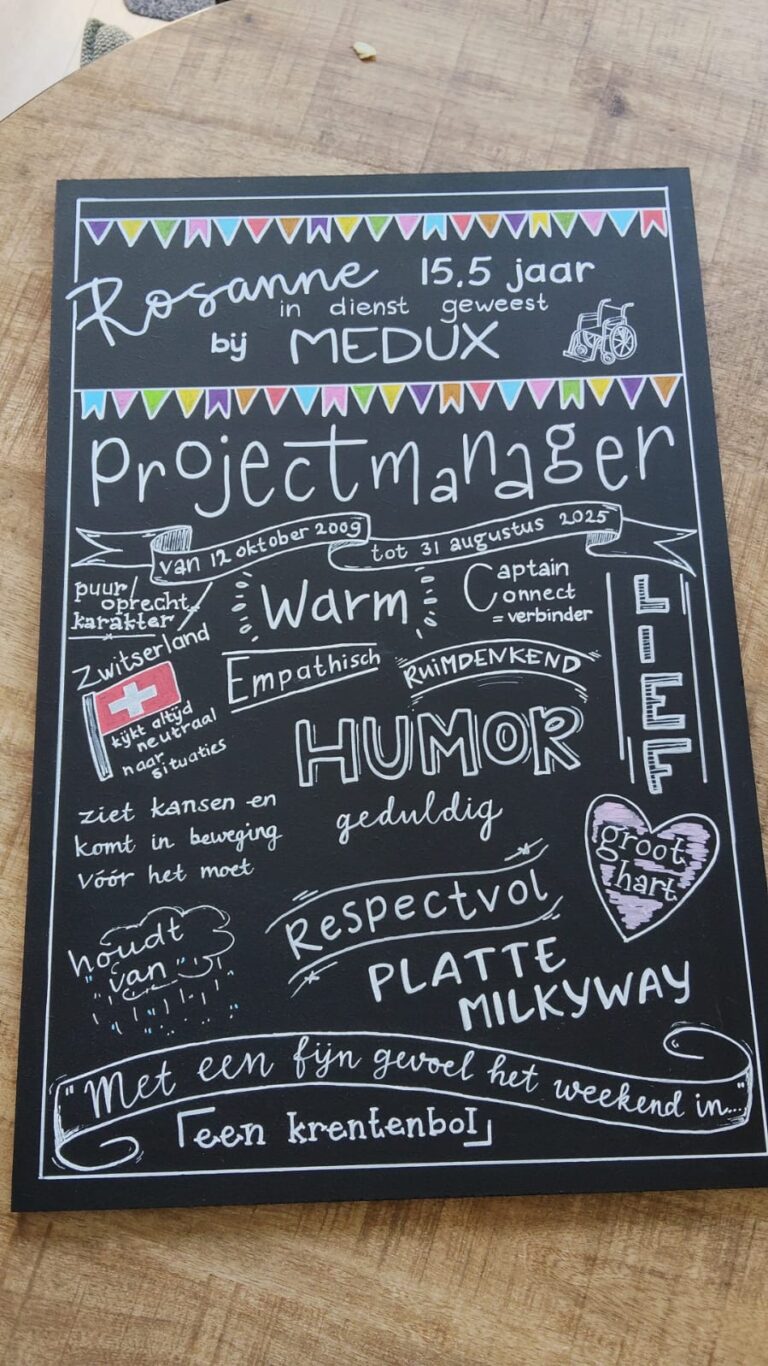 Rosanne 15,5 jaar
in dienst geweest
bij MEDUX
Projectmanager
van 12 oktober 2009 tot 31 augustus 2025
puur/
oprecht
karakter
Warm
Captain
Connect
= verbinder
LIEF
Zwitserland
kijkt altijd
neutraal
naar
situaties
Empathisch
RUIMDENKEND
HUMOR
geduldig
ziet kansen en
komt in beweging
vóór het moet
groot
hart
houdt
van
Respectvol
PLATTE
MILKYWAY
"Met een fijn gevoel het weekend in..."
een krentenbol